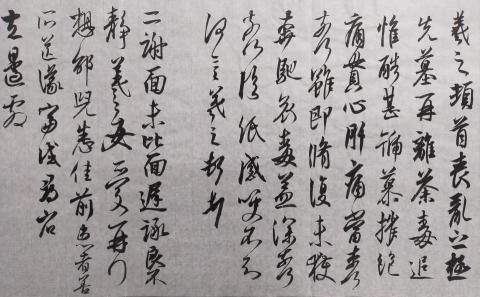 羲之頓首喪亂之極
先墓再離荼毒追
惟酷甚號慕摧絕
痛貫心肝痛當奈何
奈何雖即脩復未獲
奔馳哀毒益深奈何
奈何臨紙感哽不知
何言羲之頓首頓首
二謝面未比面遲詠良不
靜羲之女愛再拜
想邵兒悉佳前患者善
所送議當試尋省
左邊劇